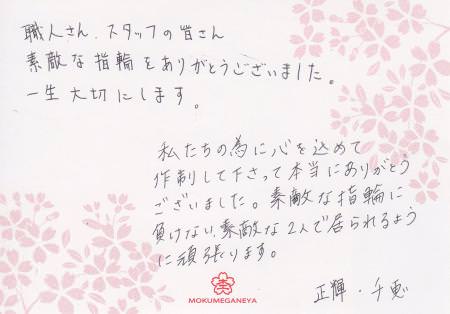 職人さん、スタッフの皆さん
素敵な指輪をありがとうございました。
一生大切にします。
私たちの為に心を込めて
作制して下さって本当にありがとう
ございました。素敵な指輪に
負けない、素敵な2人で居られるよう
に頑張ります。
正輝・千恵
MOKUMEGANEYA